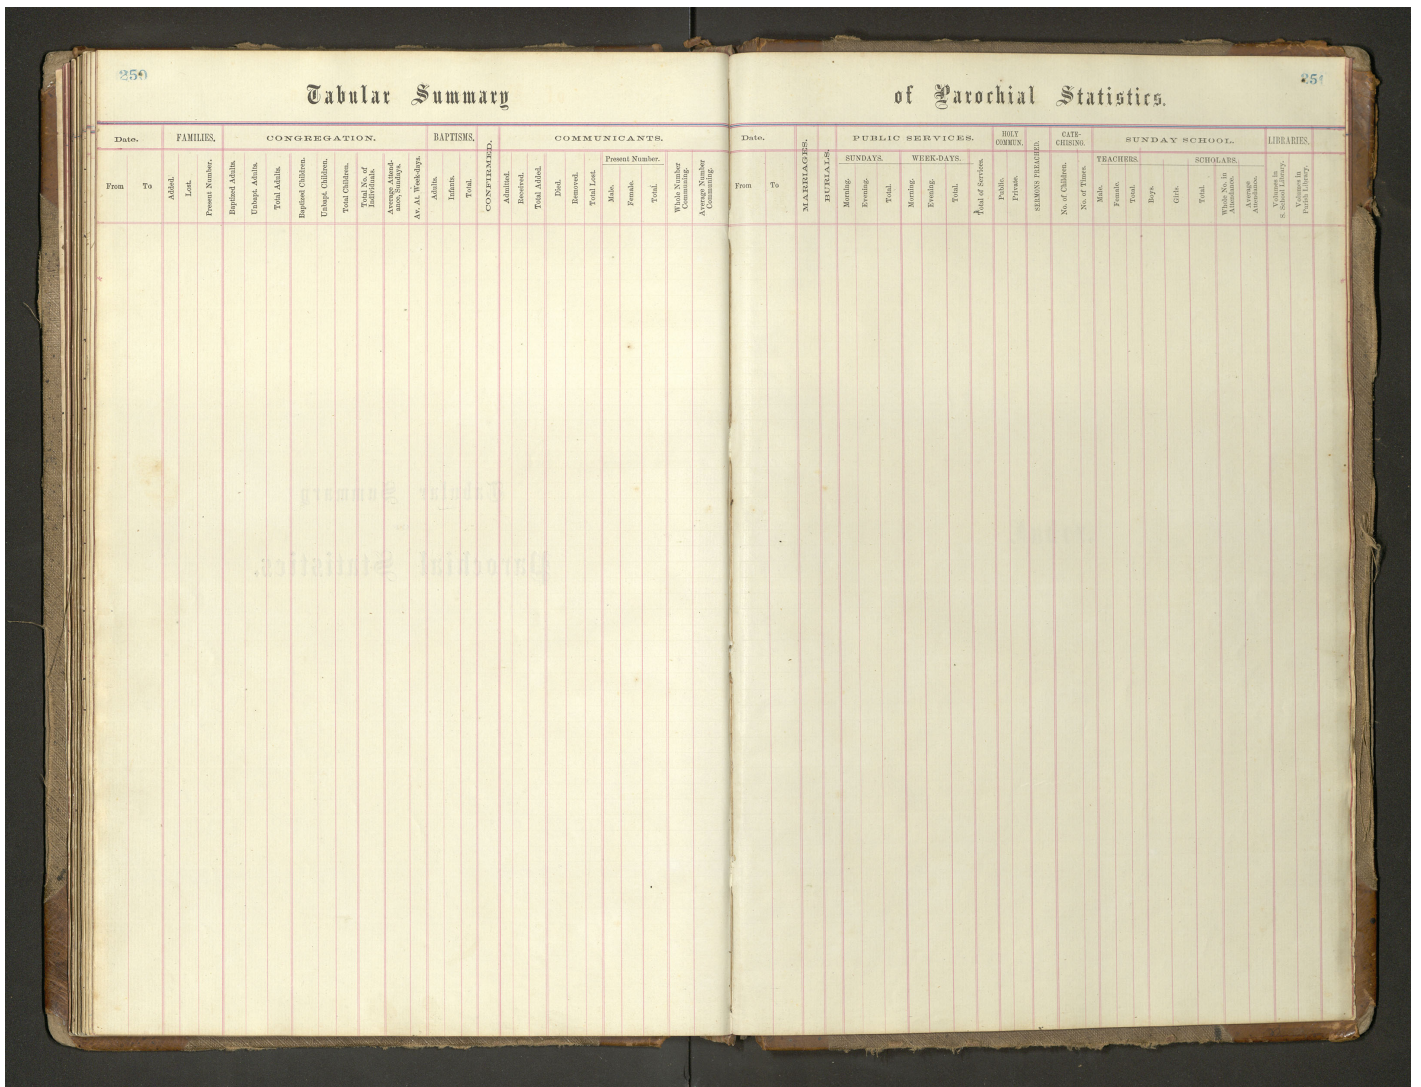 250
Tabular Summary
Date. FAMILIES. CONGREGATION. BAPTISMS. CONFIRMED. COMMUNICANTS.
From To
Added.
Lost.
Present Number.
Baptized Adults.
Unbapt. Adults.
Total Adults.
Baptized Children.
Unbapt. Children.
Total Children.
Total No. of
Individuals.
Average Attend-
ance, Sundays.
Av. At. Week-days.
Adults.
Infants.
Total.
Admitted.
Received.
Total Added.
Died.
Removed.
Total Lost.
Present Number.
Male.
Female.
Total.
Whole Number
Communing.
Average Number
Communing.
251
of Parochial Statistics.
Date. MARRIAGES. BURIALS. PUBLIC SERVICES.
From To
SUNDAYS.
Morning.
Evening.
Total.
WEEK-DAYS.
Morning.
Evening.
Total.
Total of Services.
HOLY
COMMUN.
Public.
Private.
SERMONS PREACHED.
CATE-
CHISING.
No. of Children.
No. of Times.
SUNDAY SCHOOL.
TEACHERS.
Male.
Female.
Total.
SCHOLARS.
Boys.
Girls.
Total.
Whole No. in
Attendance.
Average
Attendance.
LIBRARIES.
Volumes in
S. School Library.
Volumes in
Parish Library.
Tabular Summary
Parochial Statistics.